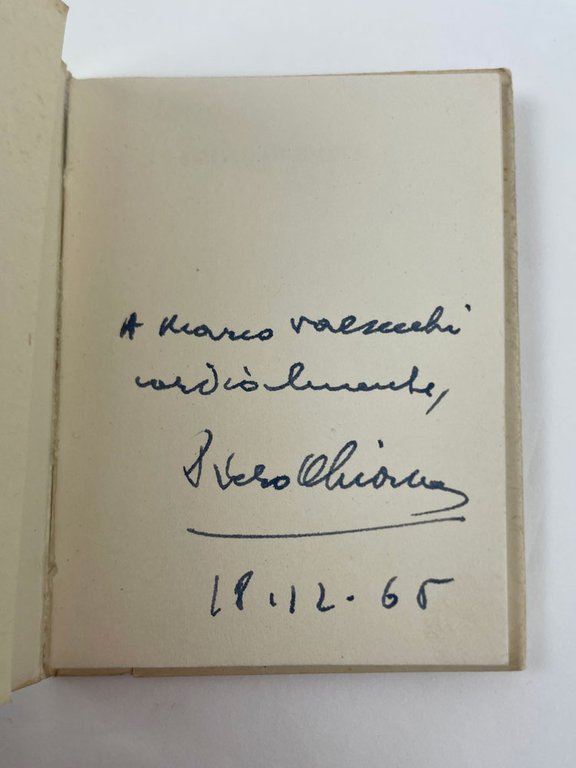 A Marco Valsecchi
cordialmente,
Piero Chiara
18.12.65